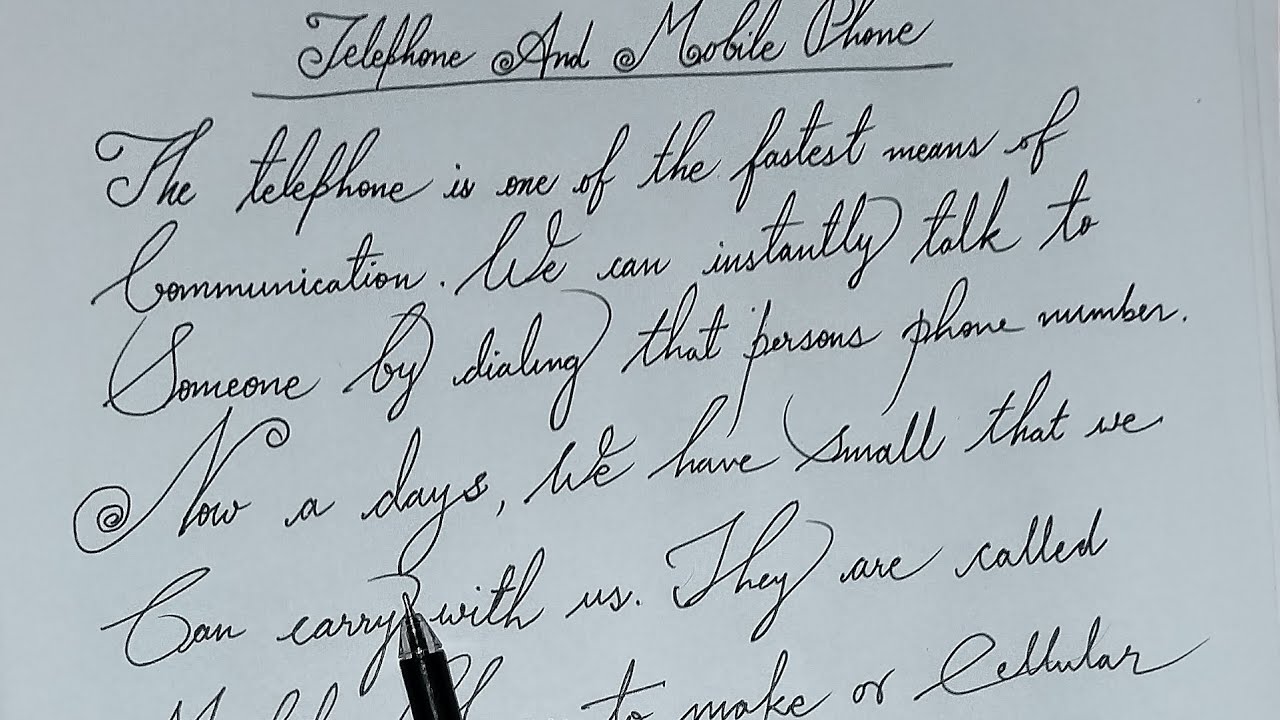 Telephone And Mobile Phone
The telephone is one of the fastest means of
Communication. We can instantly talk to
Someone by dialing that persons phone number.
Now a days, We have small that we
Can carry with us. They are called
to make or Cellular